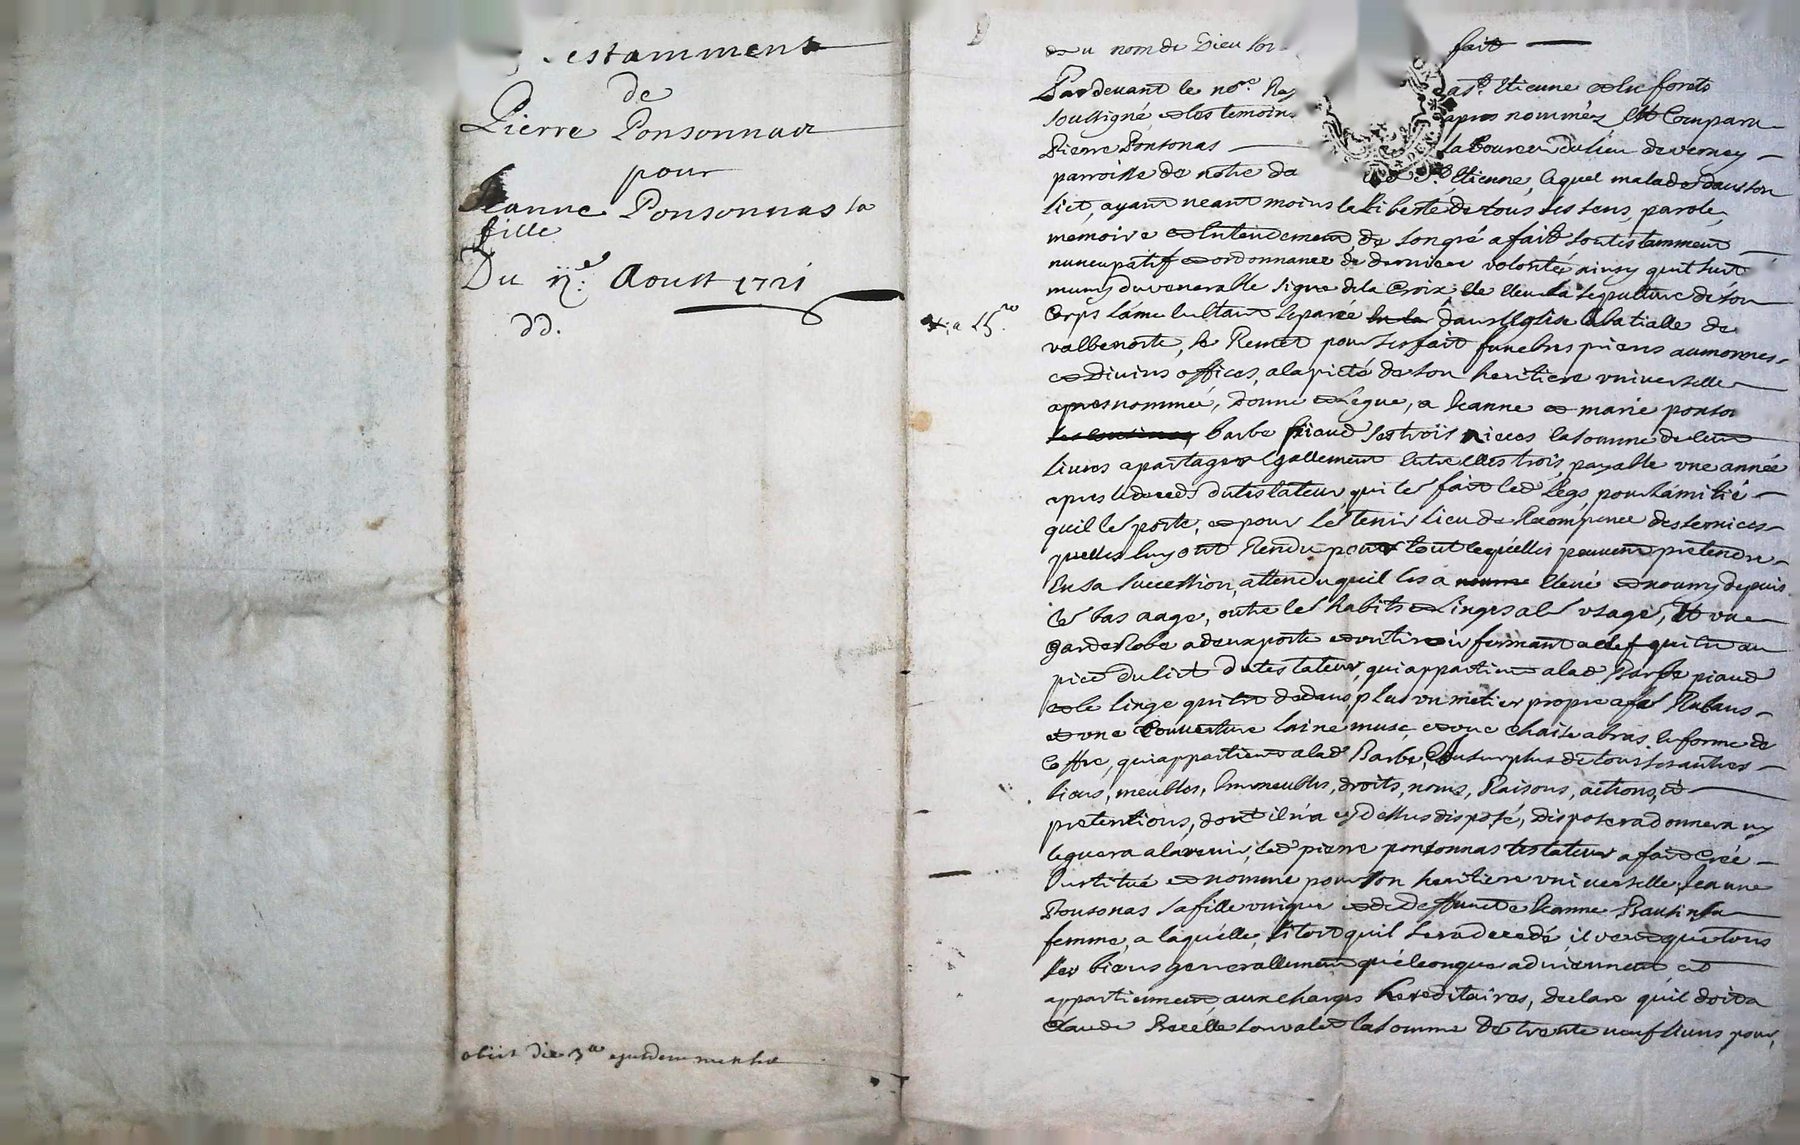 Testamment
de
Pierre Ponsonnas
pour
Jeanne Ponsonnas sa
fille
Du Aoust 1721
dd.
obiit die 3a ejusdem mensis
au nom de Dieu soit fait
Pardevant le no.re St. Etienne en forets
soussigné et les temoins apres nommés Est Comparu
Pierre Ponsonas laboureur du lieu de verney
parroisse de notre da St. Etienne, lequel malade dans son
lict, ayant neant moins la liberté de tous ses sens, parole,
memoire et Entendement, de son gré a fait son testamment
nuncupatif et ordonnance de derniere volonté ainsy quil suit
muny du venerable signe de la Croix, Elle Eleu la sepulture de son
Corps l'ame En Etant separée dans l'Eglise abatialle de
valbenoite, se Remet pour ses frait funebres prieres aumonnes
et Divins offices, a la pieté de son heritiere universelle
apres nommée, donne et Legue, a Jeanne et marie ponso
barbe piaud ses trois nieces la somme de Cent
livres a partager Egallement Entre Elles trois, payable une année
apres le deceds du testateur, qui les fait led. Legs pour l'amitié
quil les porte, et pour les tenir lieu de Recompence des services
quelles luy ont Rendu pour tout ce quelles peuvent pretendre
En sa succession, attendu quil les a Elevé et nourry depuis
le bas aage, outre les habits et linges a leur usage, Et une
garderobe a deux porte et un tiroir fermant a clef qui Est au
pied du lict du testateur, qui appartient a lad. Barbe piaud
et le linge qui Est dedans, plus un metier propre a faire Rubans
et une Couverture laine musc, et une chaise a bras En forme de
Coffre, qui appartient a lad. Barbe, Et au surplus de tous ses autres
biens, meubles, Immeubles, droits, noms, Raisons, actions, et
pretentions, dont il n'a cy dessus disposé, disposera donnera ny
leguera a l'avenir, led. pierre ponsonnas testateur a fait Creé
Institué et nommé pour son heritiere universelle, Jeanne
Ponsonas sa fille unique et de deffuncte Jeanne sa
femme, a laquelle, sitost quil sera decedé, il veut que tous
ses biens generallement quelconques adviennent et
appartiennent aux charges hereditaires, declare quil doit a
Claude son valet la somme de trente neuf livres pour